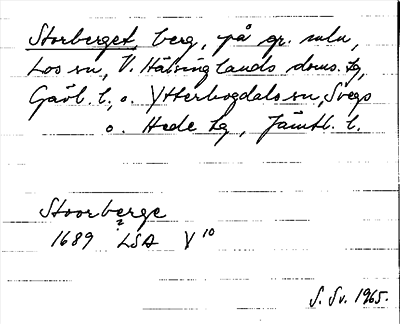 Storberget, berg, på gr. mln,
Los sn, V. Hälsinglands doms. tg,
Gävl. l., o. Ytterhogdals sn, Svegs
o. Hede tg, Jämtl. l.
Stoorberge
1689 LSA V 10
S. Sv. 1965.